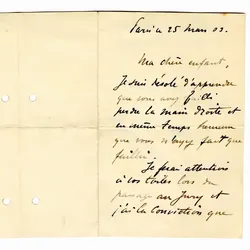 Paris le 25 Mars 03.
Ma chère enfant,
Je suis désolé d'apprendre
que vous avez failli
perdre la main droite et
en même temps heureux
que vous n'ayez fait que
faillir.
Je serai attentif
à vos toiles lors du
passage au Jury et
j'ai la Conviction que